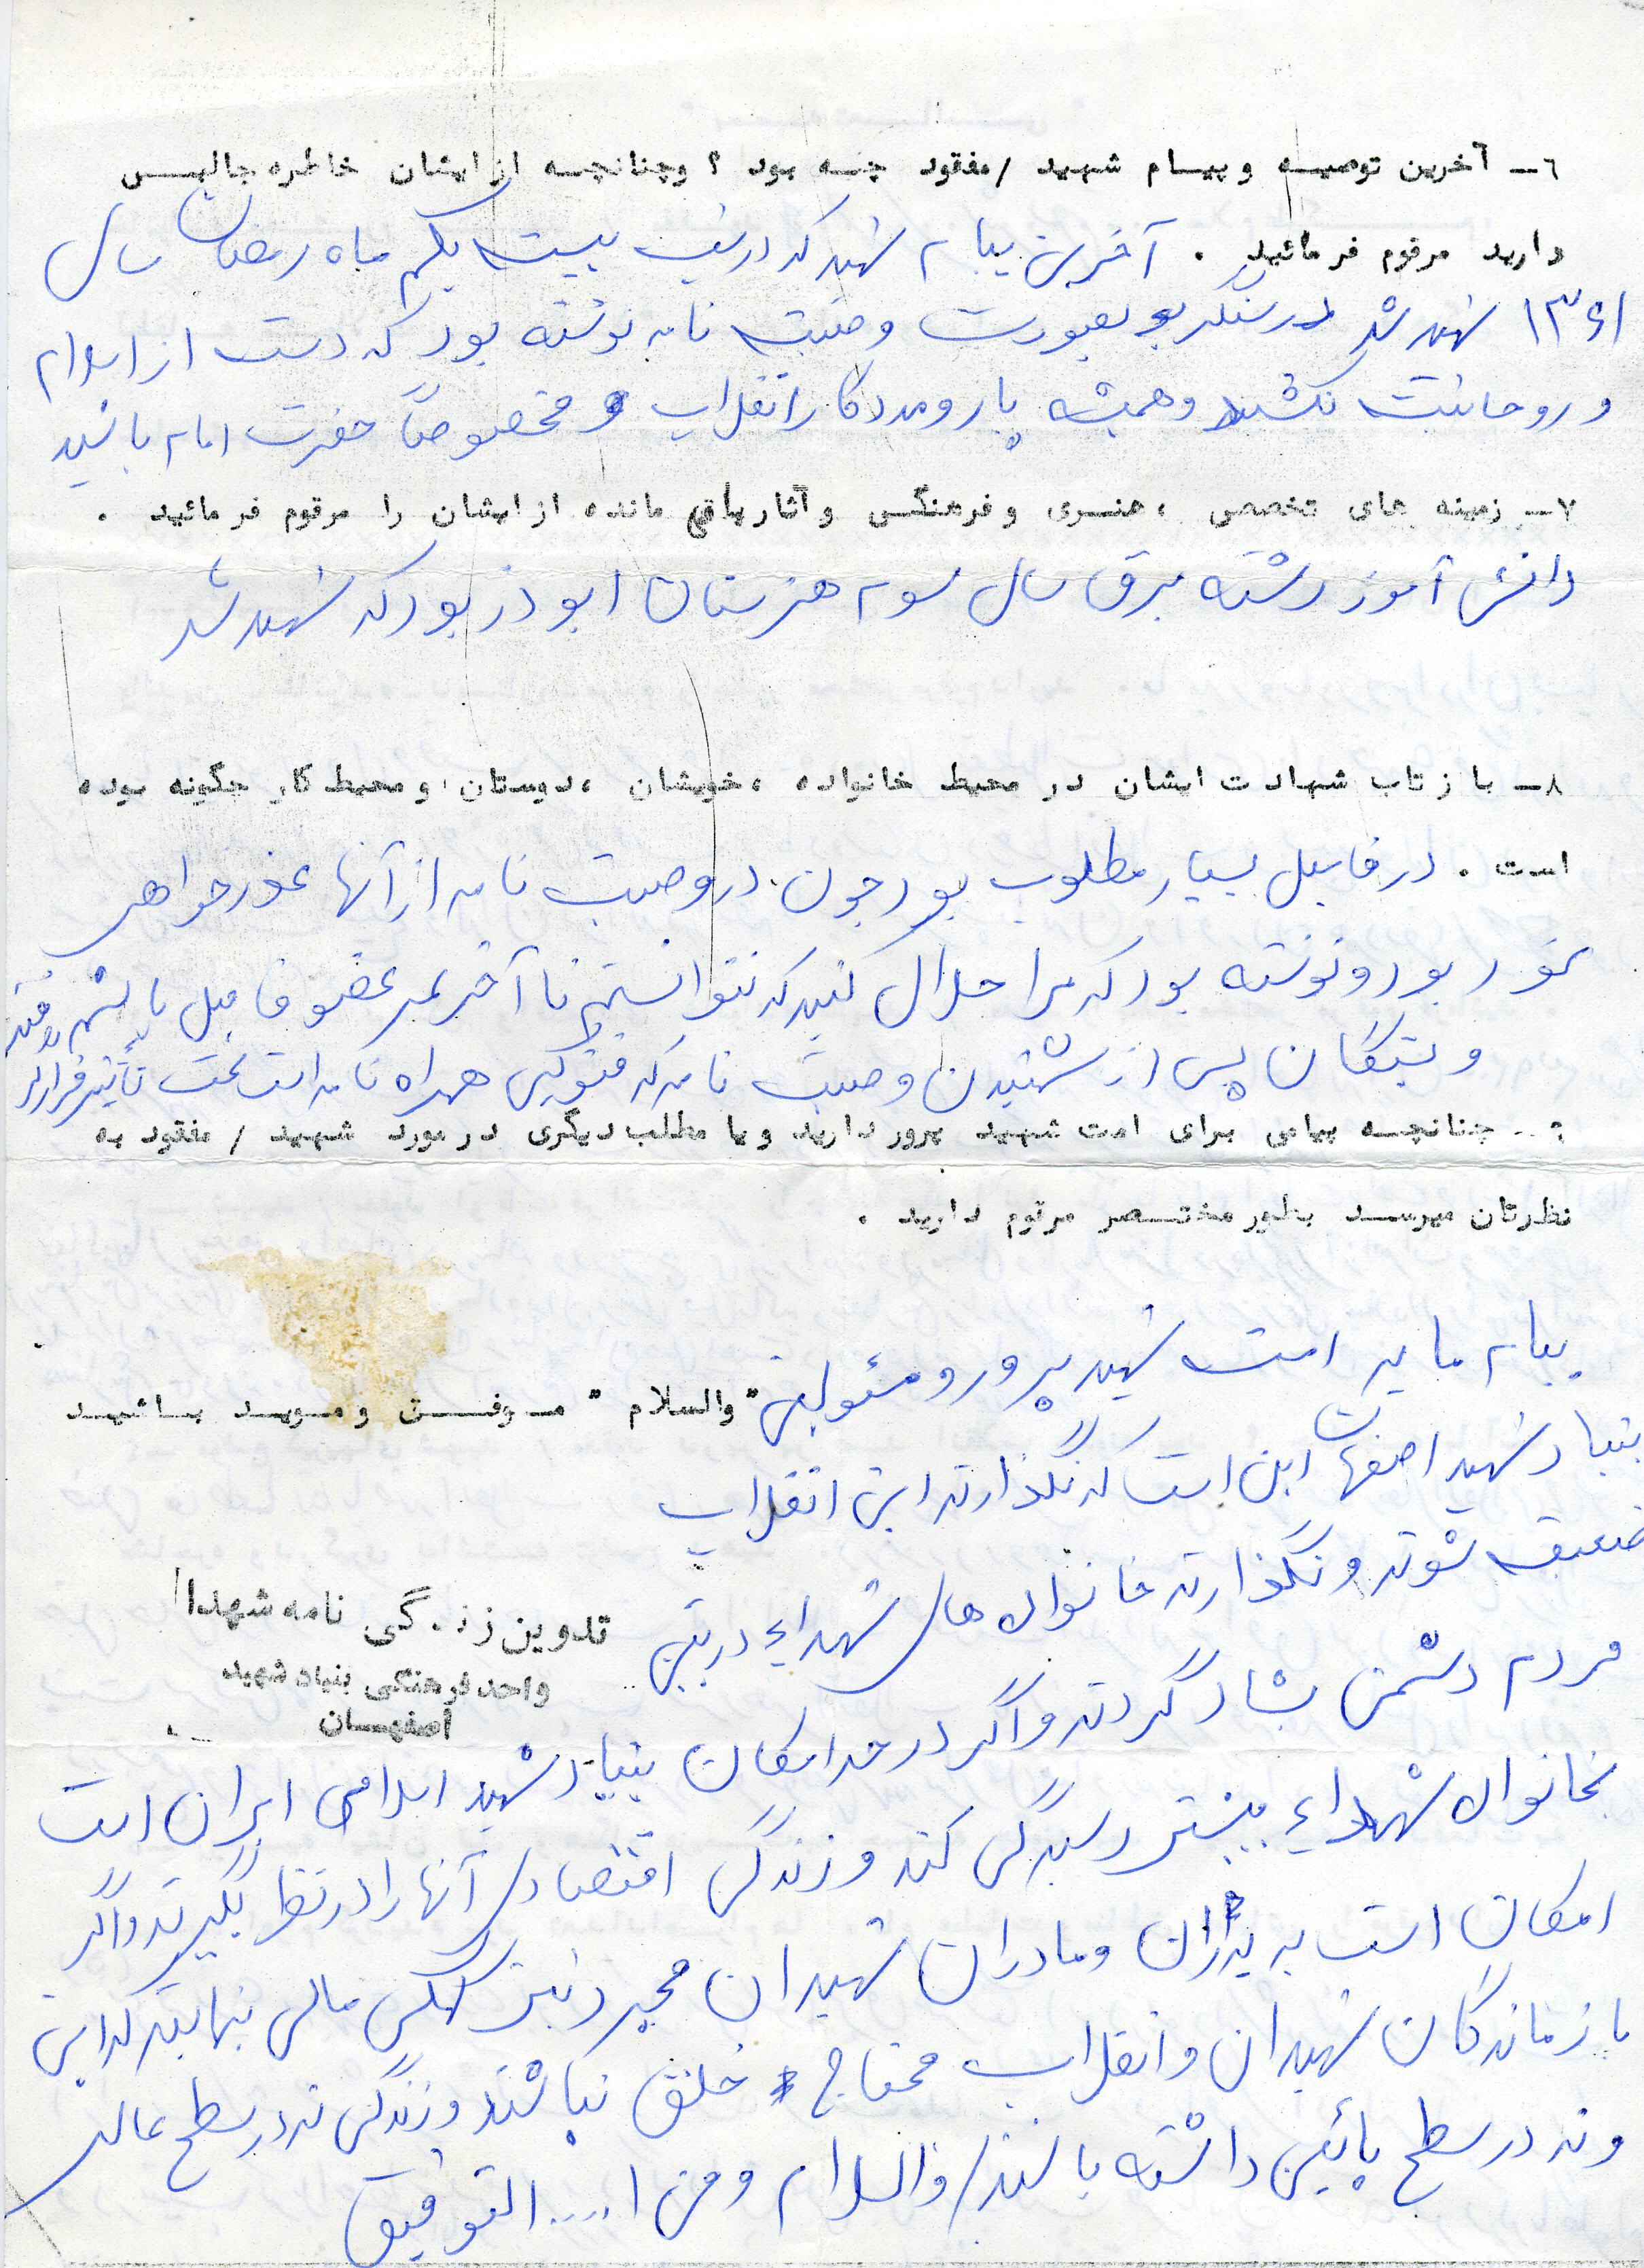 ۶ــ آخرین توصیه و پیام شهید /مفقود چه بود ؟ وچنانچه از ایشان خاطره جالبی
دارید مرقوم فرمائید . آخرین پیام شهید که در شب بیست یکم ماه رمضان سال
۱۳۶۱ شهید شد در سنگر بصورت وصیت نامه نوشته بود که دست از اسلام
و روحانیت نکشید وهمیشه یار ومددکار انقلاب و مخصوصاً حضرت امام باشید
۷ــ زمینه های تخصصی ، هنری و فرهنگی و آثار باقی مانده از ایشان را مرقوم فرمائید .
دانش آموز رشته برق سال سوم هنرستان ابوذر بود که شهید شد
۸ــ باز تاب شهادت ایشان در محیط خانواده ، خویشان ، دوستان ، و محیط کار چگونه بوده
است . در فامیل بسیار مطلوب بود چون در وصیت نامه از آنها عذر خواهی
نمود بود و نوشته بود که مرا حلال کنید که نتوانستم تا آخر عمر عضو فامیل باشم
و بستگان پس از شنیدن وصیت نامه که فتوکپی همراه نامه است تحت تأثیر قرار
۹ــ چنانچه پیامی برای امت شهید پرور دارید و یا مطلب دیگری در مورد شهید / مفقود به
نظرتان میرسد بطور مختصر مرقوم دارید .
پیام ما به امت شهید پرور و مسئولین
" والسلام " موفق و موید باشید
بنیاد شهید اصفهان این است که نگذارند این انقلاب
ضعیف شوند و نگذارند خانواده های شهداء در بین
تدوین زندگی نامه شهدا
واحد فرهنگی بنیاد شهید
اصفهان
مردم دشمن شاد گردند و اگر در حد امکان بنیاد شهید اسلامی ایران است
بخانواده شهداء بیشتر رسیدگی کند و زندگی اقتصادی آنها را در نظر بگیرند و اگر
امکان است به پدران و مادران شهیدان مجرد نیز کمکی مالی بنمایند که این
بازماندگان شهیدان و انقلاب محتاج خلق نباشند و زندگی نه در سطح عالی
و نه در سطح پائین داشته باشند/ والسلام و من ا.... التوفیق